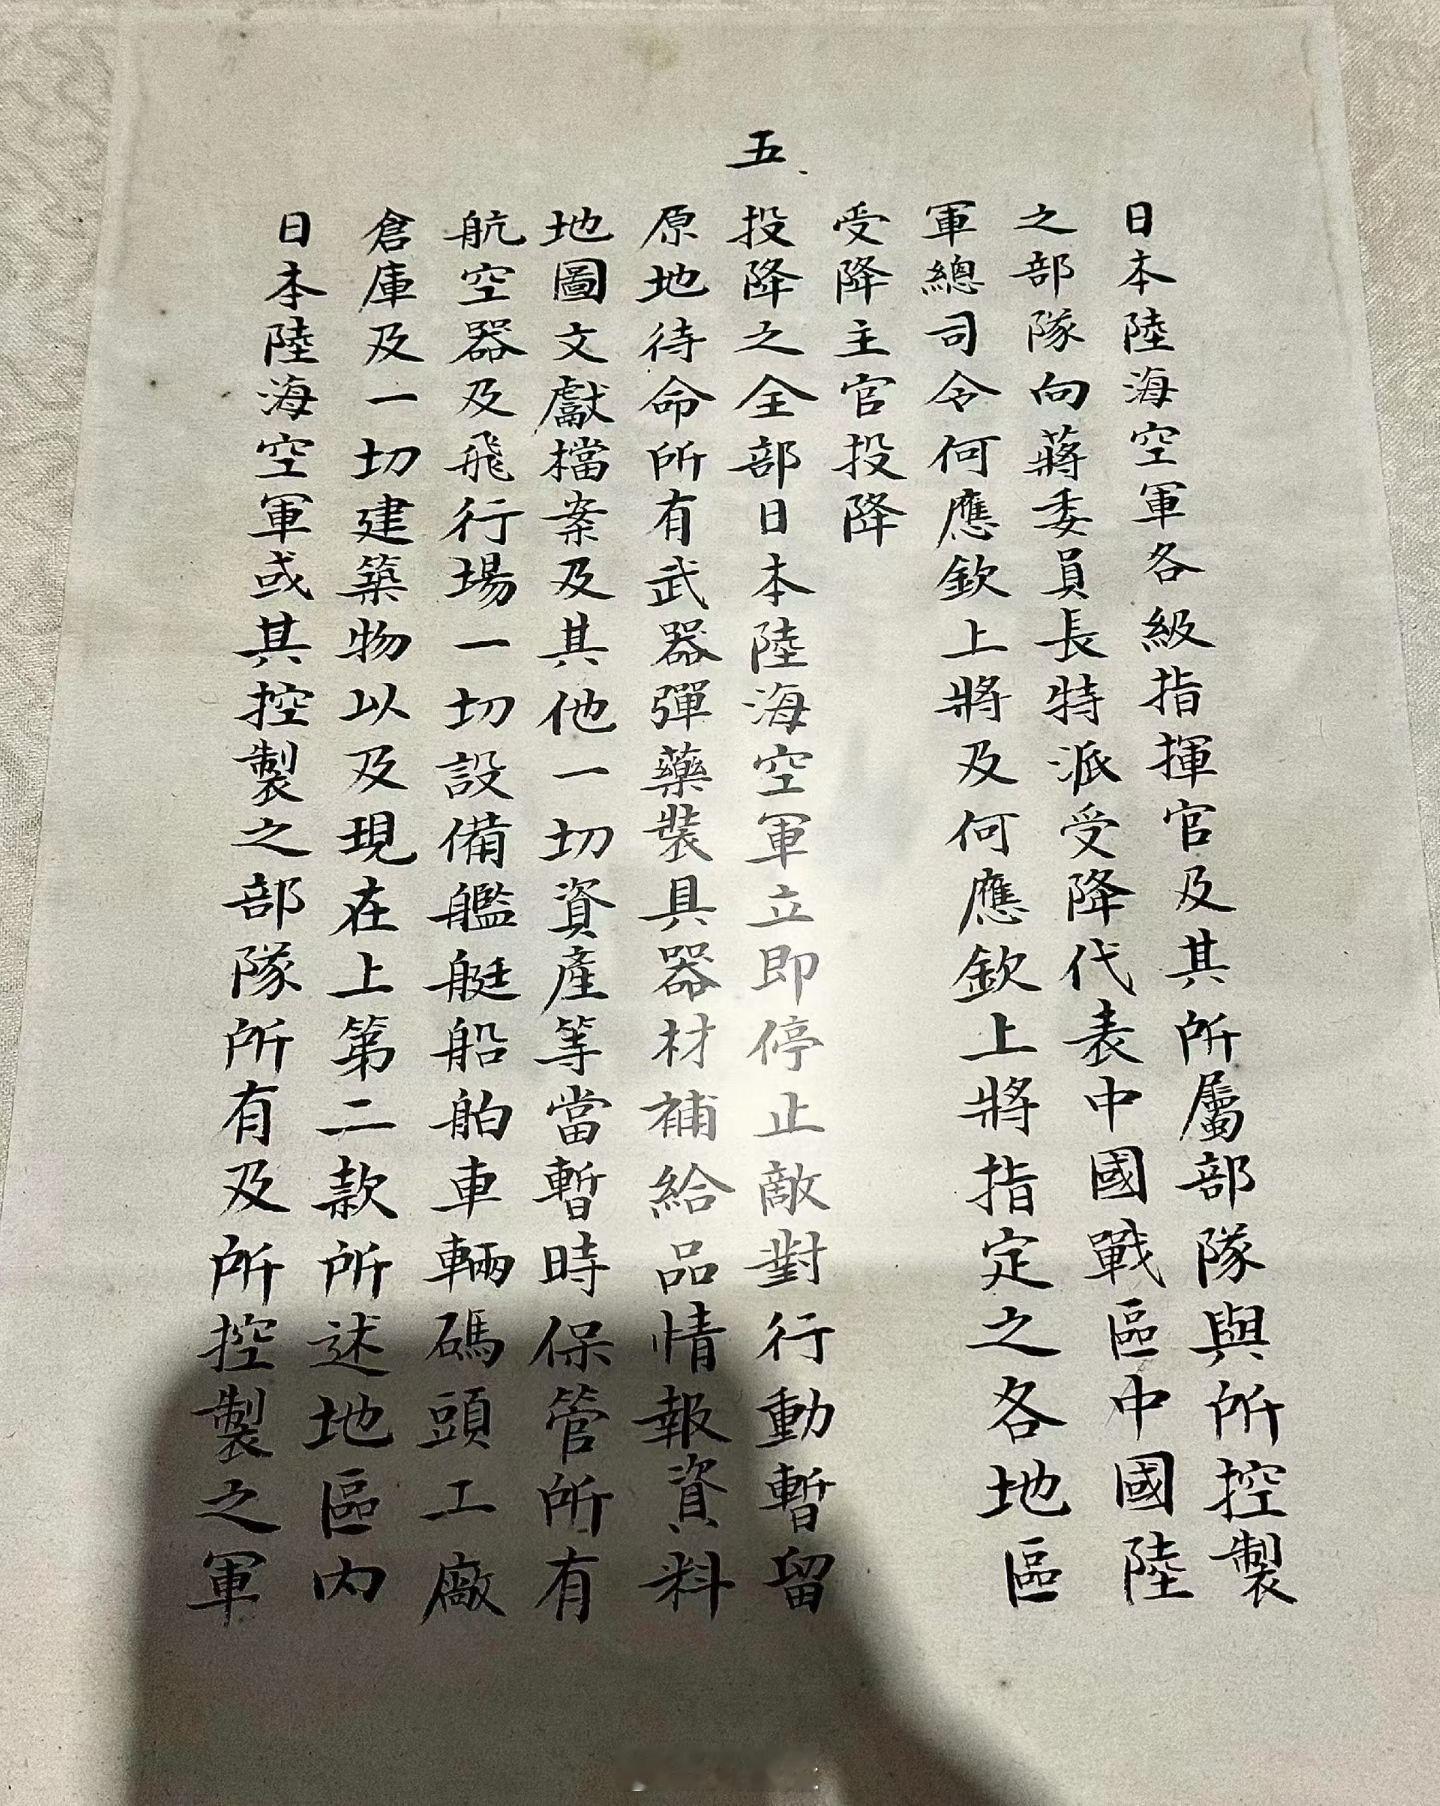 日本陸海空軍各級指揮官及其所屬部隊與所控製
之部隊向蔣委員長特派受降代表中國戰區中國陸
軍總司令何應欽上將及何應欽上將指定之各地區
受降主官投降
五、
投降之全部日本陸海空軍立即停止敵對行動暫留
原地待命所有武器彈藥裝具器材補給品情報資料
地圖文獻檔案及其他一切資產等當暫時保管所有
航空器及飛行場一切設備艦艇船舶車輛碼頭工廠
倉庫及一切建築物以及現在上第二款所述地區內
日本陸海空軍或其控製之部隊所有及所控製之軍